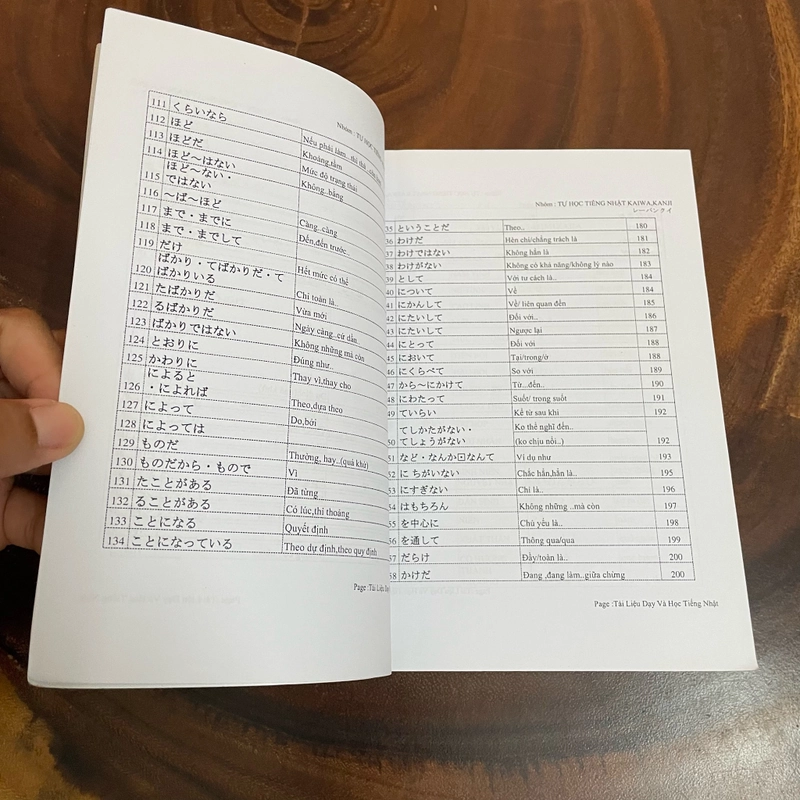 Nhóm : TỰ HỌC TIẾNG
111 くらいなら Nếu phải làm.. thì thà
112 ほど Khoảng,tầm
113 ほどだ Mức độ trạng thái
114 ほど〜はない Không..bằng
115 ほど〜ない・
ではない
116 〜ば〜ほど Càng..càng
117 まで・までに Đến,đến trước..
118 まで・までして
119 だけ Hết mức có thể
ばかり・てばかりだ・て
120 ばかりいる Chỉ toàn là..
121 たばかりだ Vừa mới
122 るばかりだ Ngày càng..cứ dần..
123 ばかりではない Không những mà còn
124 とおりに Đúng như..
125 かわりに Thay vì,thay cho
によると
126 ・によれば Theo,dựa theo
127 によって Do,bởi
128 によっては
129 ものだ Thường, hay..(quá khứ)
130 ものだから・もので Vì
131 たことがある Đã từng
132 ることがある Có lúc,thi thoảng
133 ことになる Quyết định
134 ことになっている Theo dự định,theo quy định
Page :Tài Liệu Dạy
Nhóm : TỰ HỌC TIẾNG NHẬT KAIWA,KANJI
レーバンクイ
35 ということだ Theo.. 180
36 わけだ Hèn chi/chẳng trách là 181
37 わけではない Không hẳn là 182
38 わけがない Không có khả năng/không lý nào 183
39 として Với tư cách là.. 184
40 について Về 184
41 にかんして Về/ liên quan đến 185
42 にたいして Đối với.. 186
43 にたいして Ngược lại 187
44 にとって Đối với 188
45 において Tại/trong/ở 188
46 にくらべて So với 189
47 から〜にかけて Từ...đến.. 190
48 にわたって Suốt/ trong suốt 191
49 ていらい Kể từ sau khi 192
てしかたがない・ Ko thể nghĩ đến..
50 てしょうがない (ko chịu nổi..) 192
51 など・なんか⊡なんて Ví dụ như 193
52 に ちがいない Chắc hẳn,hẳn là.. 195
53 にすぎない Chỉ là.. 196
54 はもちろん Không những ..mà còn 197
55 を中心に Chủ yếu là.. 198
56 を通して Thông qua/qua 199
57 だらけ Đầy/toàn là.. 200
58 かけだ Đang ,đang làm..giữa chừng 200
Page :Tài Liệu Dạy Và Học Tiếng Nhật